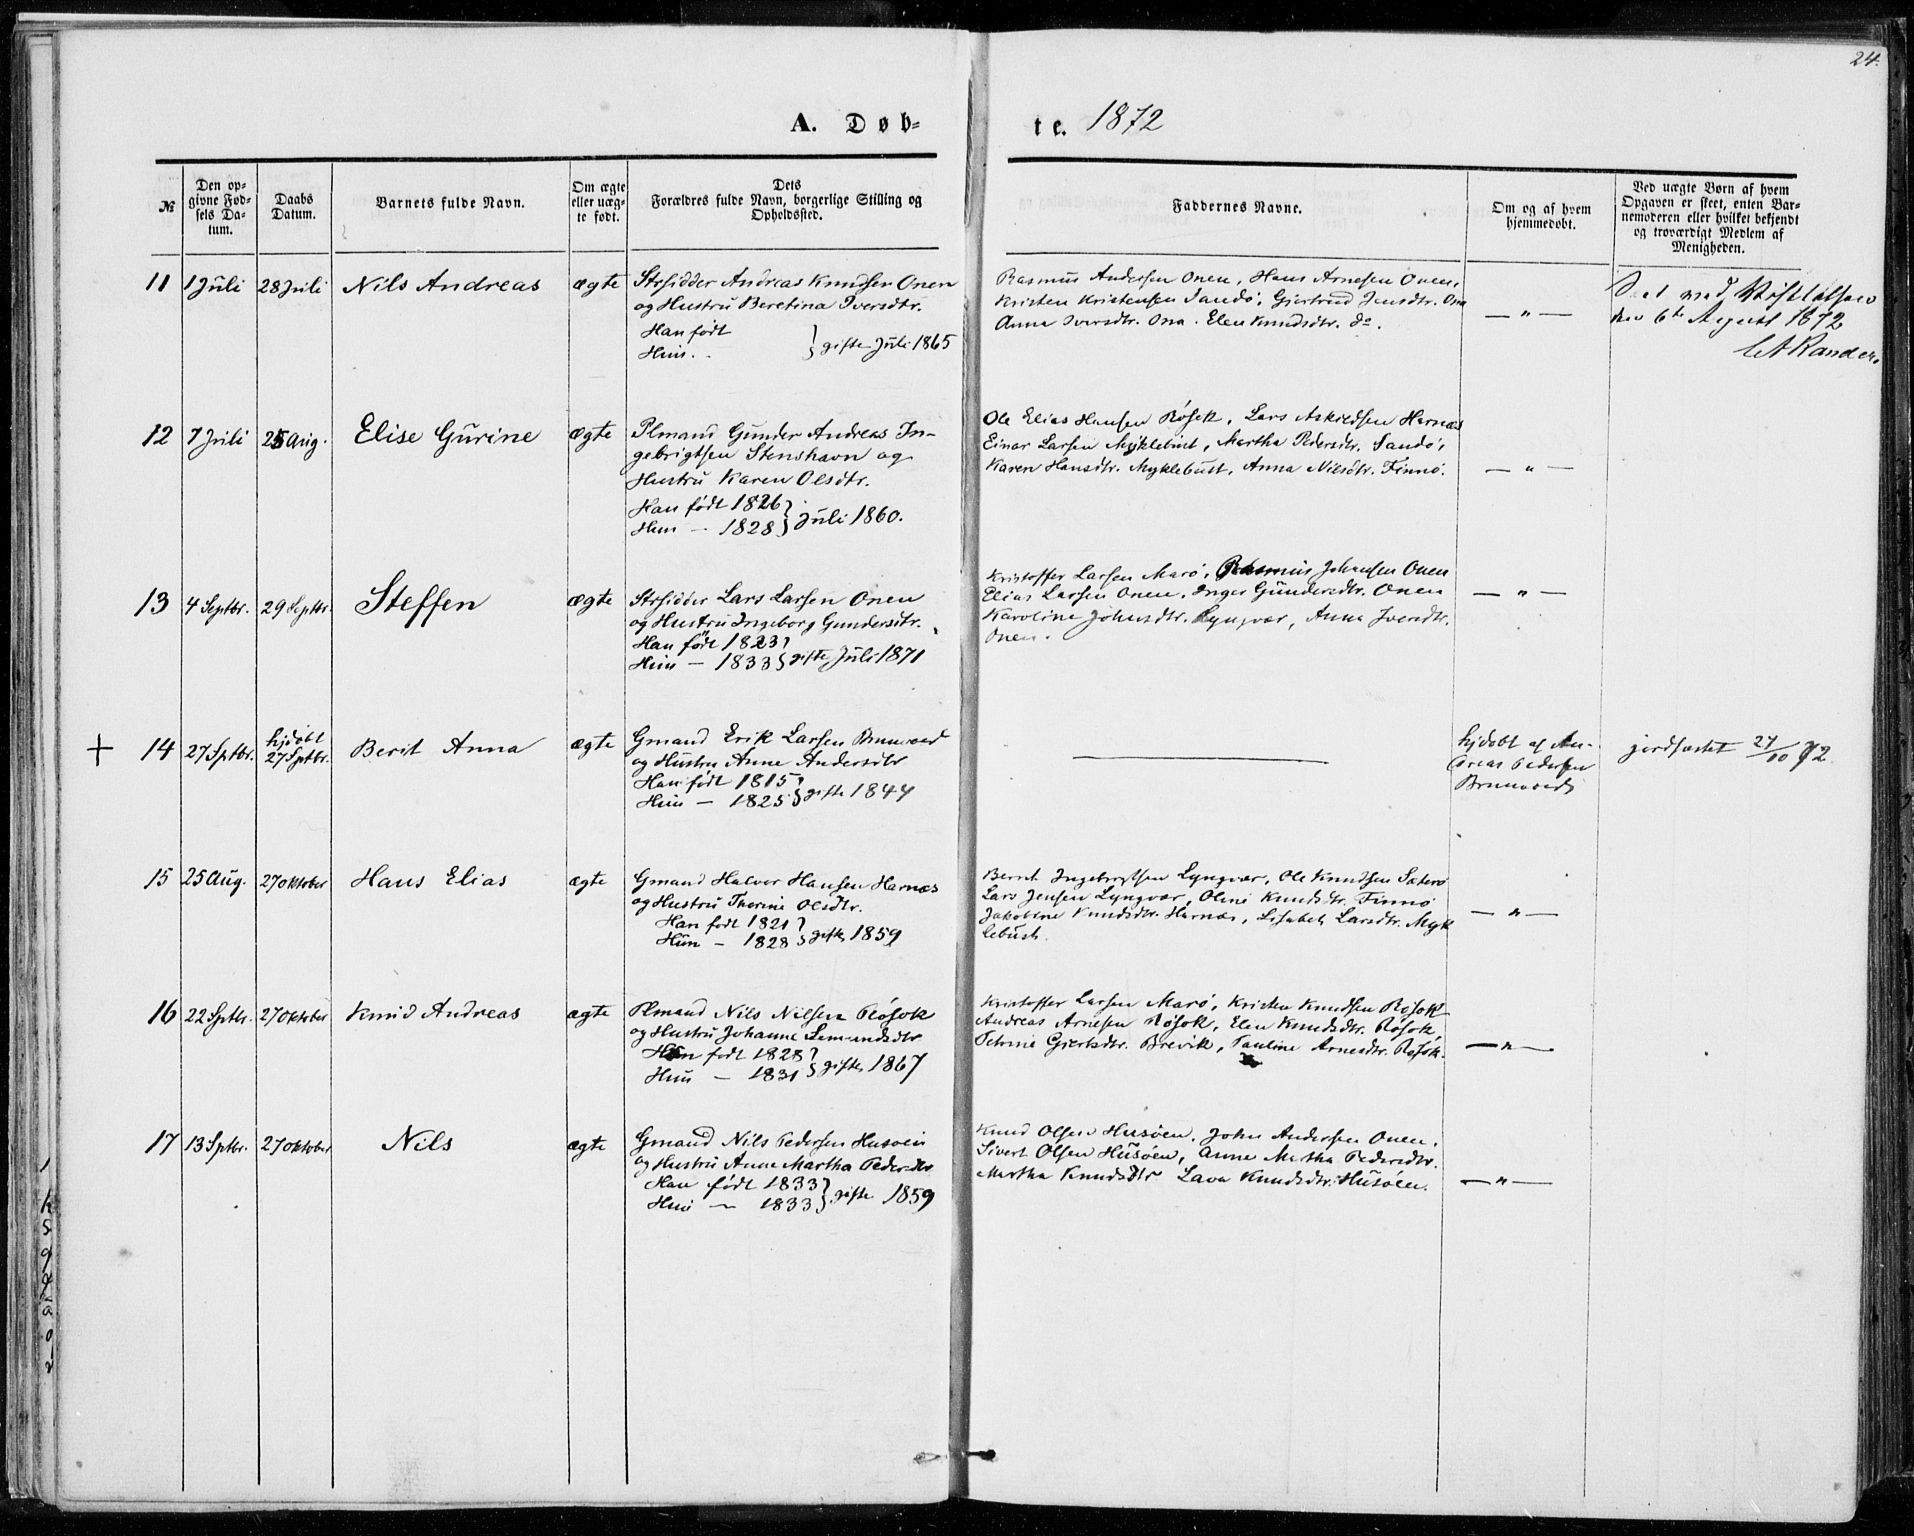 24.
A. Døb-
te. 1872
№
Den op-
givne Fød-
sels Da-
tum.
Daabs
Datum.
Barnets fulde Navn.
Om ægte
eller uæg-
te født.
Dets
Forældres fulde Navn, borgerlige Stilling og
Opholdssted.
Faddernes Navne.
Om og af hvem
hjemmedøbt.
Ved uægte Børn af hvem
Opgaven er skeet, enten Bar-
nemoderen eller hvilket bekjendt
og troværdigt Medlem af
Menigheden.
11 1 Juli 28 Juli Nils Andreas ægte
Strsidder Andreas Knudsen Onen
og Hustru Beretina Iversdtr.
Han født
Hun . . } gifte Juli 1865
Rasmus Andersen Onen, Hans Arnesen Onen,
Kristen Kristensen Sandö, Gjertrud Jensdtr. Ona
Anna Iversdtr. Ona. Elen Knudsdtr. do.
— " —
den 6te August 1872
12 7 Juli 25 Aug. Elise Gurine ægte
Plmand Gunder Andreas In-
gebrigtsen Stenshavn og
Hustru Karen Olsdtr.
Han født 1826
Hun — 1828 } Juli 1860.
Ole Elias Hansen Røsok, Lars Askildsen Harnæs
Einar Larsen Myklebust, Martha Pedersdtr. Sandö,
Karen Hansdtr. Myklebust, Anna Nilsdtr. Finnö.
— " —
13 4 Septbr. 29 Septbr. Steffen ægte
Strsidder Lars Larsen Onen
og Hustru Ingeborg Gundersdtr.
Han født 1823
Hun — 1833 } gifte Juli 1871
Kristoffer Larsen Marö, Rasmus Johansen Onen
Elias Larsen Onen, Inger Gundersdtr. Onen
Karoline Johnsdtr. Lyngvær, Anna Iversdtr.
Onen.
— " —
+ 14 27 Sptbr. hjdøbt
27 Sptbr. Berit Anna ægte
Gmand Erik Larsen Brunvold
og Hustru Anne Andersdtr
Han født 1815
Hun — 1825 } gifte 1844
hjdøbt af An-
dreas Pedersen
Brunvold
jordfæstet 27/10 72.
15 25 Aug. 27 Oktober Hans Elias ægte
Gmand Halvor Hansen Harnæs
og Hustru Thorine Olsdtr.
Han født 1821
Hun — 1828 } gifte 1859
Bernt Ingebrigtsen Lyngvær, Ole Knudsen Sæterö
Lars Jensen Lyngvær, Oline Knudsdtr. Finnö
Jakobine Knudsdtr. Harnæs, Lisabet Larsdtr. Myk
lebust.
— " —
16 22 Sptbr. 27 Oktober Knud Andreas ægte
Plmand Nils Nilsen Røsok
og Hustru Johanne Lemundsdtr
Han født 1828
Hun — 1831 } gifte 1867
Kristoffer Larsen Marö, Kristen Knudsen Røsok
Andreas Arnesen Røsok, Elen Knudsdtr. Røsok
Petrine Gjertsdtr. Brevik, Pauline Arnesdtr. Røsok.
— " —
17 13 Sptbr. 27 Oktober Nils ægte
Gmand Nils Pedersen Husøen
og Hustru Anne Martha Pedersdtr
Han født 1833
Hun — 1833 } gifte 1859
Knud Olsen Husøen. John Andersen Onen.
Sivert Olsen Husøen, Anne Martha Pedersdtr.
Martha Knudsdtr Lava Knudsdtr. Husøen.
— " —